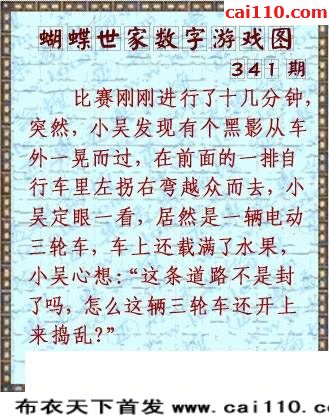 cai110.com
蝴蝶世家数字游戏图
341期
比赛刚刚进行了十几分钟，
突然，小吴发现有个黑影从车
外一晃而过，在前面的一排自
行车里左拐右弯越众而去，小
吴定眼一看，居然是一辆电动
三轮车，车上还载满了水果，
小吴心想：“这条道路不是封
了吗，怎么这辆三轮车还开上
来捣乱？”
布衣天下首发 www.cai110.c